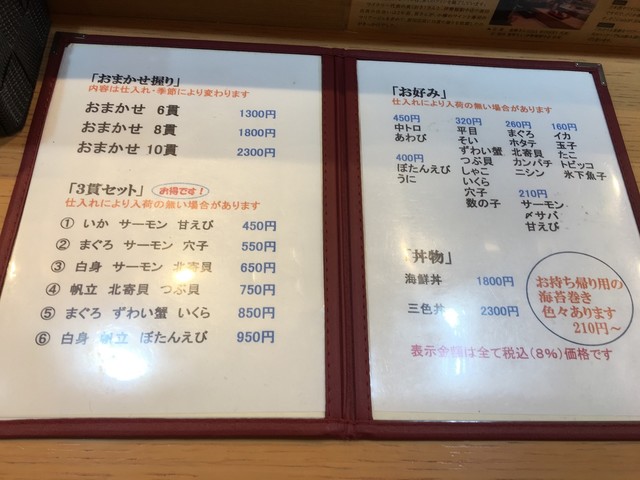 「おまかせ握り」
内容は仕入れ・季節により変わります
おまかせ 6貫 1300円
おまかせ 8貫 1800円
おまかせ 10貫 2300円
「3貫セット」 お得です!
仕入れにより入荷の無い場合があります
① いか サーモン 甘えび 450円
② まぐろ サーモン 穴子 550円
③ 白身 サーモン 北寄貝 650円
④ 帆立 北寄貝 つぶ貝 750円
⑤ まぐろ ずわい蟹 いくら 850円
⑥ 白身 帆立 ぼたんえび 950円
「お好み」
仕入れにより入荷の無い場合があります
450円
中トロ
あわび
400円
ぼたんえび
うに
320円
平目
そい
ずわい蟹
つぶ貝
しゃこ
いくら
穴子
数の子
260円
まぐろ
ホタテ
北寄貝
カンパチ
ニシン
210円
サーモン
〆サバ
甘えび
160円
イカ
玉子
たこ
トビッコ
氷下魚子
「丼物」
海鮮丼 1800円
三色丼 2300円
お持ち帰り用の
海苔巻き
色々あります
210円~
表示金額は全て税込(8%)価格です